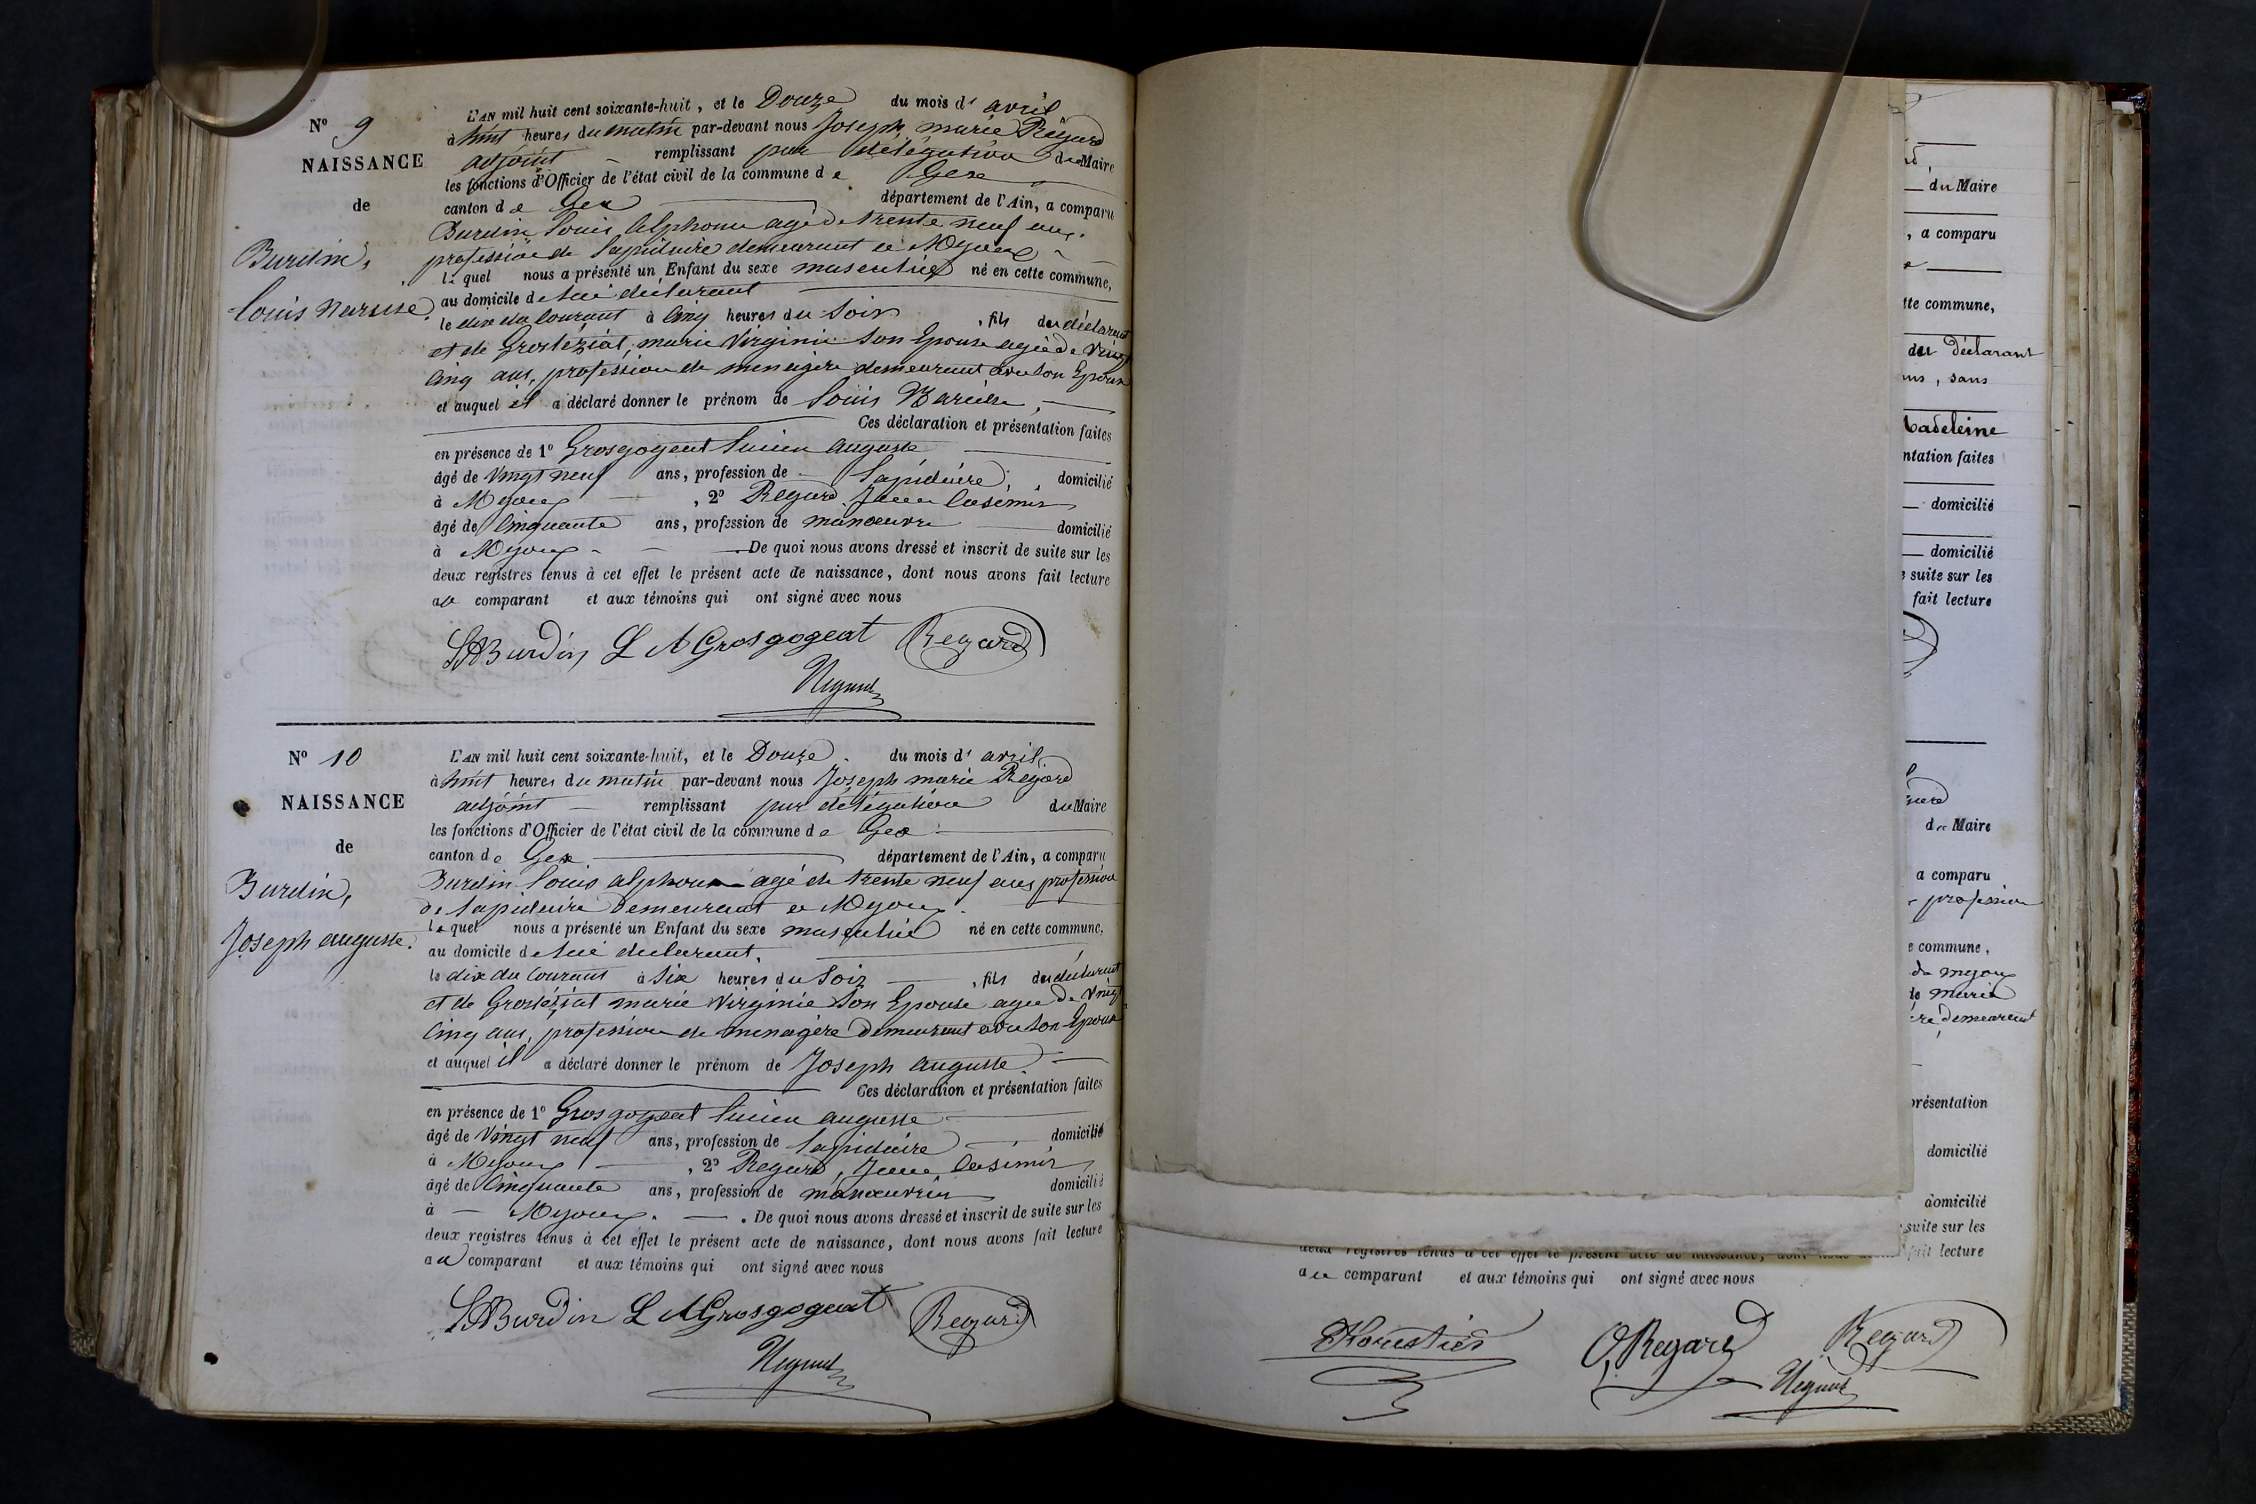 N° 9
NAISSANCE
de
Burdin,
Louis Narcisse
L'AN mil huit cent soixante-huit, et le Douze du mois d' avril
à huit heures du matin par-devant nous Joseph marie Regard
adjoint remplissant par délégation du Maire
les fonctions d'Officier de l'état civil de la commune de Gex
canton de Gex département de l'Ain, a comparu
Burdin Louis alphonse agé de trente neuf ans.
profession de lapidaire demeurant à Mijoux
lequel nous a présenté un Enfant du sexe masculin né en cette commune,
au domicile de lui déclarant
le dix du Courant à Cinq heures du Soir, fils du déclarant
et de Grosléziat, marie Virginie Son Epouse agée de Vingt
Cinq ans, profession de menagère demeurant avec son Epoux
et auquel il a déclaré donner le prénom de Louis Narcisse,
Ces déclaration et présentation faites
en présence de 1° Grosgogeat Lucien auguste
âgé de Vingt neuf ans, profession de Lapidaire, domicilié
à Mijoux, 2° Regard, Jean Casimir
âgé de Cinquante ans, profession de manoeuvre domicilié
à Mijoux De quoi nous avons dressé et inscrit de suite sur les
deux registres tenus à cet effet le présent acte de naissance, dont nous avons fait lecture
au comparant et aux témoins qui ont signé avec nous
LABurdin L A Grosgogeat Regard
Regard
N° 10
NAISSANCE
de
Burdin,
Joseph auguste.
L'AN mil huit cent soixante-huit, et le Douze du mois d' avril
à huit heures du matin par-devant nous Joseph marie Regard
adjoint remplissant par délégation du Maire
les fonctions d'Officier de l'état civil de la commune de Gex
canton de Gex département de l'Ain, a comparu
Burdin Louis alphonse agé de trente neuf ans profession
de lapidaire demeurant à Mijoux
lequel nous a présenté un Enfant du sexe masculin né en cette commune,
au domicile de lui declarant.
le dix du Courant à Six heures du Soir, fils du déclarant
et de Grosléziat marie Virginie Son Epouse agée de Vingt
Cinq ans, profession de menagère Demeurant avec son Epoux
et auquel il a déclaré donner le prénom de Joseph auguste.
Ces déclaration et présentation faites
en présence de 1° Grosgogeat Lucien auguste
âgé de Vingt neuf ans, profession de lapidaire domicilié
à Mijoux, 2° Regard, Jean Casimir
âgé de Cinquante ans, profession de manoeuvrier domicilié
à Mijoux. De quoi nous avons dressé et inscrit de suite sur les
deux registres tenus à cet effet le présent acte de naissance, dont nous avons fait lecture
au comparant et aux témoins qui ont signé avec nous
LABurdin L A Grosgogeat Regard
Regard
du Maire
, a comparu
tte commune,
du déclarant
ans, sans
Madeleine
ntation faites
domicilié
domicilié
suite sur les
fait lecture
du Maire
a comparu
profession
e commune,
de mijoux
marie
demeurant
présentation
domicilié
domicilié
suite sur les
deux registres tenus à cet effet le présent acte de naissance, dont nous fait lecture
au comparant et aux témoins qui ont signé avec nous
Regard Regard
Regard